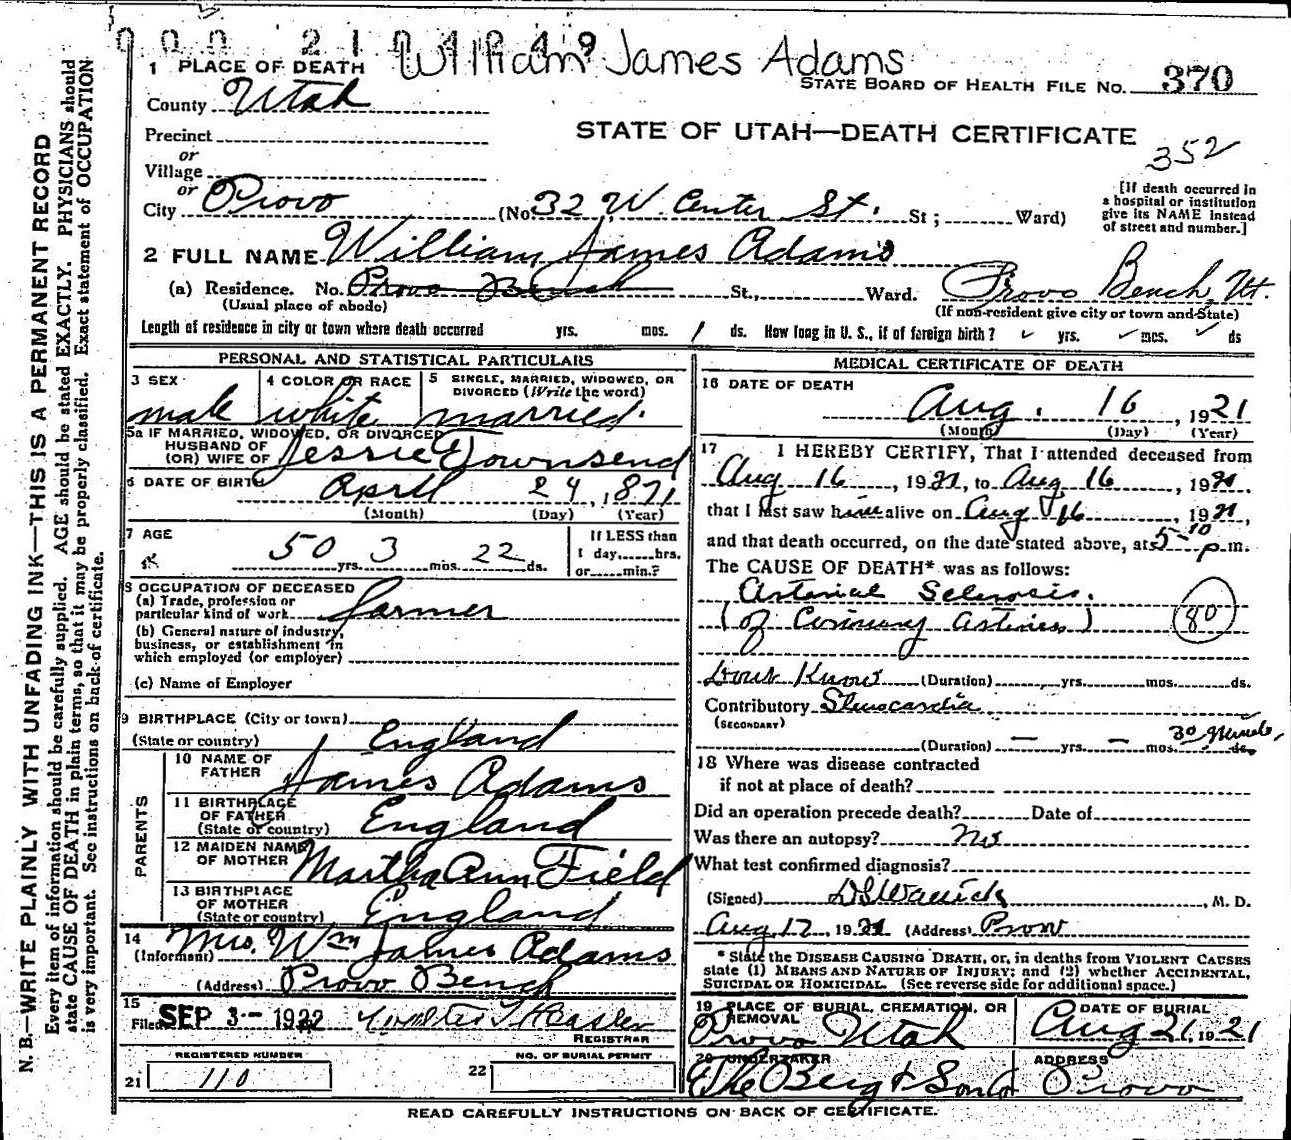 000 2104049
William James Adams
1 PLACE OF DEATH
STATE BOARD OF HEALTH FILE No. 370
County Utah
STATE OF UTAH—DEATH CERTIFICATE
Precinct
352
or
Village
or
City Provo (No. 32 W. Center St. St; Ward)
[If death occurred in
a hospital or institution
give its NAME instead
of street and number.]
2 FULL NAME William James Adams
(a) Residence. No. Provo Bench St., Ward. Provo Bench, Ut.
(Usual place of abode) (If non-resident give city or town and State)
Length of residence in city or town where death occurred yrs. mos. 1 ds. How long in U. S., if of foreign birth? yrs. mos. ds
PERSONAL AND STATISTICAL PARTICULARS
3 SEX 4 COLOR OR RACE 5 SINGLE, MARRIED, WIDOWED, OR
DIVORCED (Write the word)
male white married.
5a IF MARRIED, WIDOWED, OR DIVORCED
HUSBAND OF
(OR) WIFE OF Jessie Townsend
6 DATE OF BIRTH April 24, 1871
(Month) (Day) (Year)
7 AGE 50 yrs. 3 mos. 22 ds.
If LESS than
1 day, hrs.
or min.?
8 OCCUPATION OF DECEASED
(a) Trade, profession or
particular kind of work farmer
(b) General nature of industry,
business, or establishment in
which employed (or employer)
(c) Name of Employer
9 BIRTHPLACE (City or town)
(State or country) England
PARENTS
10 NAME OF
FATHER James Adams
11 BIRTHPLACE
OF FATHER
(State or country) England
12 MAIDEN NAME
OF MOTHER Martha Ann Field
13 BIRTHPLACE
OF MOTHER
(State or country) England
14
(Informant) Mrs. Wm James Adams
(Address) Provo Bench
15
Filed SEP 3- 1922
REGISTRAR
REGISTERED NUMBER NO. OF BURIAL PERMIT
21 110 22
MEDICAL CERTIFICATE OF DEATH
16 DATE OF DEATH
Aug. 16, 1921
(Month) (Day) (Year)
17 I HEREBY CERTIFY, That I attended deceased from
Aug 16, 1921, to Aug 16, 1921,
that I last saw him alive on Aug 16, 1921,
and that death occurred, on the date stated above, at 5-10 p.m.
The CAUSE OF DEATH* was as follows:
Arterial Sclerosis.
(of Coronary arteries) 80
Dont Know (Duration) yrs. mos. ds.
Contributory Stenocardia
(SECONDARY)
(Duration) — yrs. — mos. 30 Minute, ds.
18 Where was disease contracted
if not at place of death?
Did an operation precede death? Date of
Was there an autopsy? No
What test confirmed diagnosis?
(Signed) , M. D.
Aug 17, 1921 (Address) Provo
* State the DISEASE CAUSING DEATH, or, in deaths from VIOLENT CAUSES
state (1) MEANS AND NATURE OF INJURY; and (2) whether ACCIDENTAL,
SUICIDAL OR HOMICIDAL. (See reverse side for additional space.)
19 PLACE OF BURIAL, CREMATION, OR
REMOVAL
Provo Utah
DATE OF BURIAL
Aug 21, 1921
20 UNDERTAKER ADDRESS
The Berg & Sons Co Provo
READ CAREFULLY INSTRUCTIONS ON BACK OF CERTIFICATE.
N. B.—WRITE PLAINLY WITH UNFADING INK—THIS IS A PERMANENT RECORD
Every item of information should be carefully supplied. AGE should be stated EXACTLY. PHYSICIANS should
state CAUSE OF DEATH in plain terms, so that it may be properly classified. Exact statement of OCCUPATION
is very important. See instructions on back of certificate.